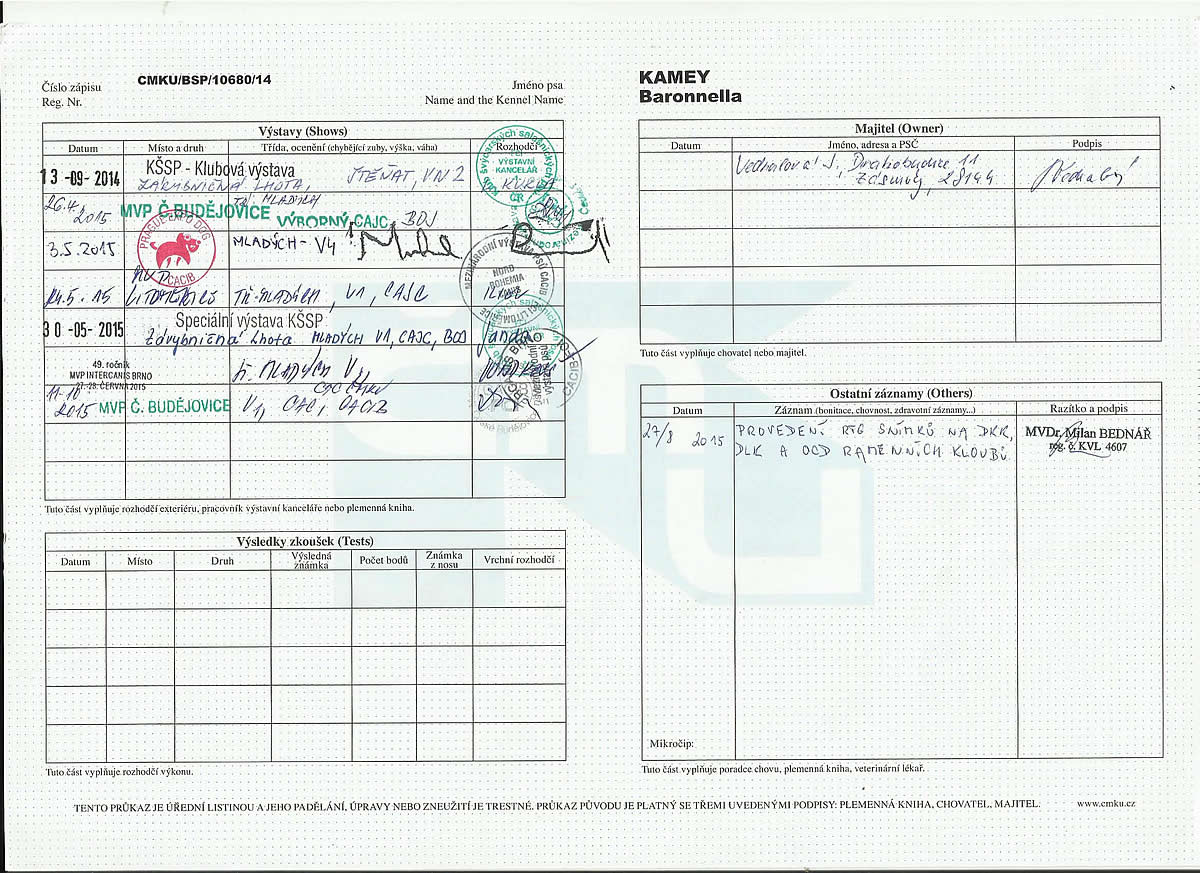 Číslo zápisu
Reg. Nr.
CMKU/BSP/10680/14
Jméno psa
Name and the Kennel Name
KAMEY
Baronnella
Výstavy (Shows)
Datum
Místo a druh
Třída, ocenění (chybějící zuby, výška, váha)
Rozhodčí
13 -09- 2014
KŠSP - Klubová výstava
ZÁRYBNIČNÁ LHOTA,
ŠTĚŇAT, VN 2
VÝSTAVNÍ
KANCELÁŘ
ČR
26.4.
2015
MVP Č. BUDĚJOVICE
TŘ. MLADÝCH
VÝBORNÝ, CAJC, BOJ
3.5.2015
PRAGUE EXPO DOG
CACIB
MLADÝCH - V4
MEZINÁRODNÍ VÝSTAVA PSŮ CACIB
NORD
BOHEMIA
CANIS
LITOMĚŘICE
MVP
24.5.15
LITOMĚŘICE
TŘ. MLADÝCH, V1, CAJC
30 -05- 2015
Speciální výstava KŠSP
Zárybničná Lhota MLADÝCH V1, CAJC, BOJ
Janda
49. ročník
MVP INTERCANIS BRNO
27.-28. ČERVNA 2015
tř. MLADÝCH V1,
CAJC ČMKU
11-10
2015
MVP Č. BUDĚJOVICE
V1, CAC, CACIB
Tuto část vyplňuje rozhodčí exteriéru, pracovník výstavní kanceláře nebo plemenná kniha.
Výsledky zkoušek (Tests)
Datum
Místo
Druh
Výsledná
známka
Počet bodů
Známka
z nosu
Vrchní rozhodčí
Tuto část vyplňuje rozhodčí výkonu.
Majitel (Owner)
Datum
Jméno, adresa a PSČ
Podpis
Zásmuky, 28144
Tuto část vyplňuje chovatel nebo majitel.
Ostatní záznamy (Others)
Datum
Záznam (bonitace, chovnost, zdravotní záznamy...)
Razítko a podpis
27/8 2015
PROVEDENÍ RTG SNÍMKŮ NA DKK,
DLK A OCD RAMENNÍCH KLOUBŮ
MVDr. Milan BEDNÁŘ
reg. č. KVL 4607
Mikročip:
Tuto část vyplňuje poradce chovu, plemenná kniha, veterinární lékař.
TENTO PRŮKAZ JE ÚŘEDNÍ LISTINOU A JEHO PADĚLÁNÍ, ÚPRAVY NEBO ZNEUŽITÍ JE TRESTNÉ. PRŮKAZ PŮVODU JE PLATNÝ SE TŘEMI UVEDENÝMI PODPISY: PLEMENNÁ KNIHA, CHOVATEL, MAJITEL.
www.cmku.cz